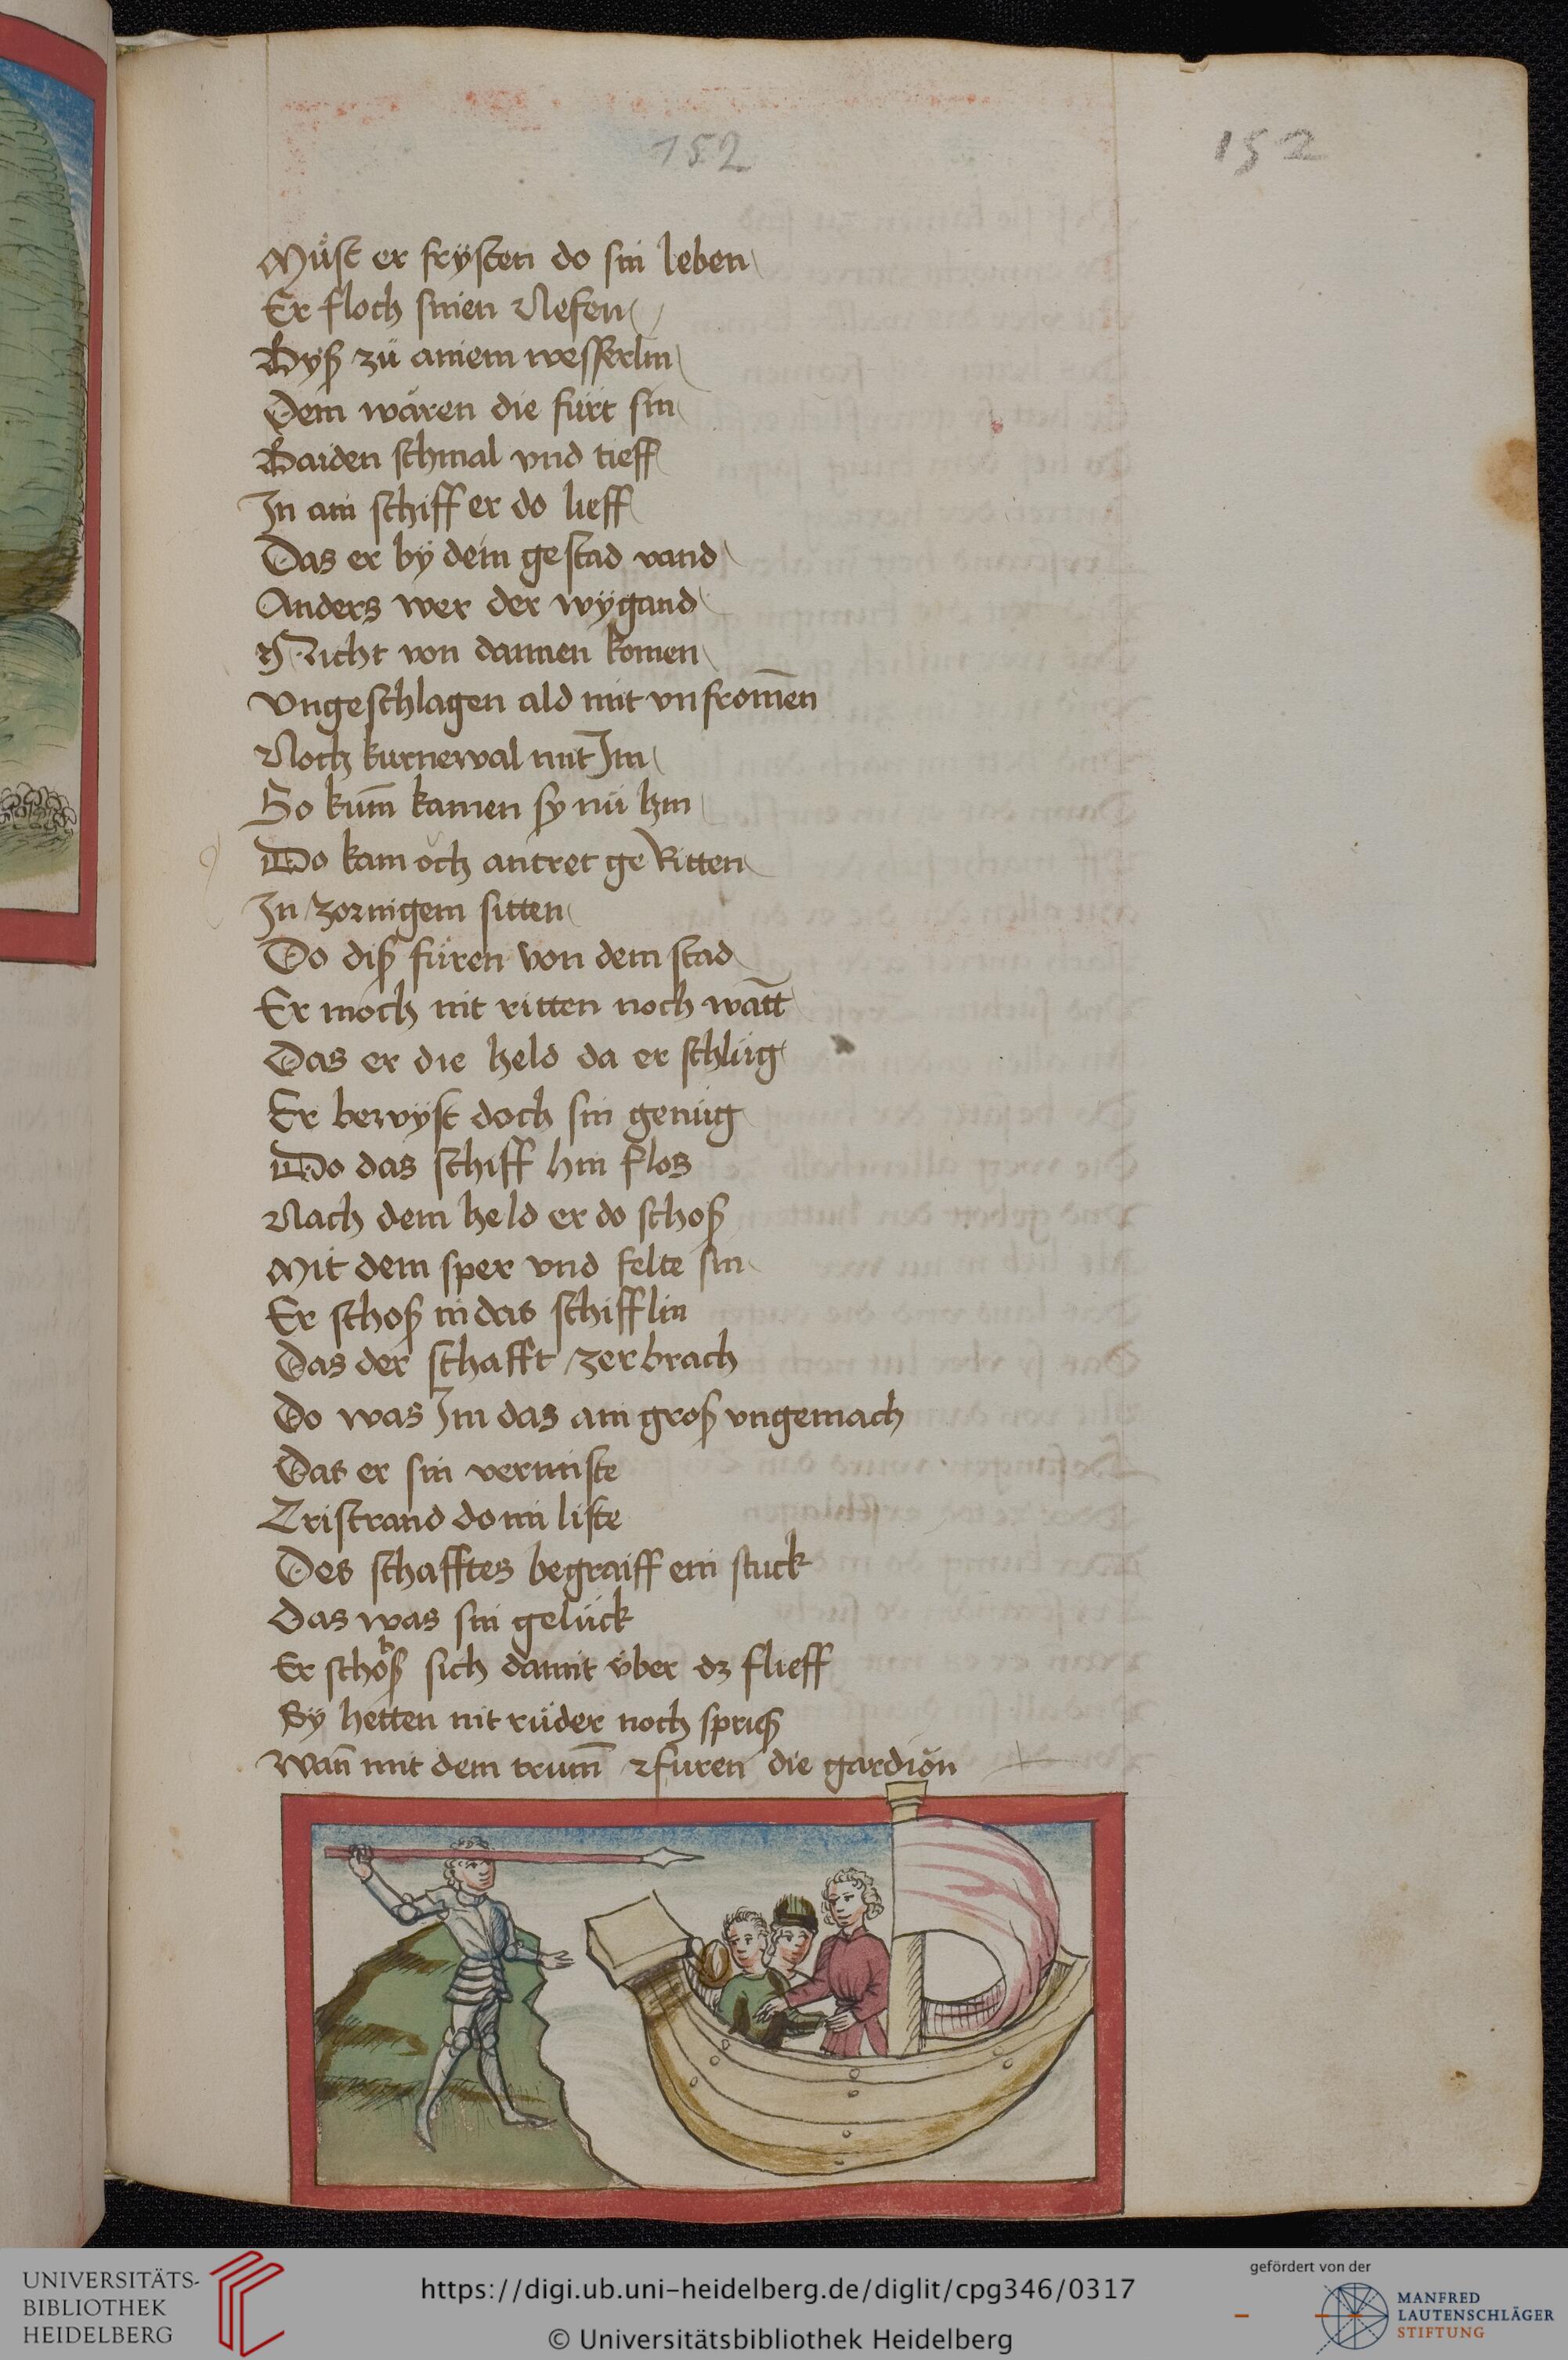 152
152
Müst er frÿsten do sin leben
Er floch sinen Nefen
Byß zü ainem wesserlin
Dem wären die fürt sin
Baiden schmal vnd tieff
In ain schiff er do lieff
Das er bÿ dem gestad vand
Anders wer der wÿgand
Nicht von dannen komen
Vngeschlagen ald mit vnfrom̄en
Noch kurnewal mit Im
So kum̄ kamen sy nü hin
Do kam och antret ge Ritten
In zornigem sitten
Do diß füren von dem stad
Er moch nit ritten noch watt̄
Das er die held da er schlüg
Er bewÿst doch sin genüg
Do das schiff hin flos
Nach dem held er do schoß
Mit dem sper vnd felte sin
Er schoß in das schifflin
Das der schafft zerbrach
Do was Im das ain groß vngemach
Das er sin vermiste
Tristrand do mi liste
Des schafftes begraiff ein stuck
Das was sin gelück
Er schoß sich damit über dz flieff
Sÿ hetten nit rüder noch spriß
Wan̄ mit dem trum̄ furen die gardion
UNIVERSITÄTS-
BIBLIOTHEK
HEIDELBERG
https://digi.ub.uni-heidelberg.de/diglit/cpg346/0317
© Universitätsbibliothek Heidelberg
gefördert von der
MANFRED
LAUTENSCHLÄGER
STIFTUNG